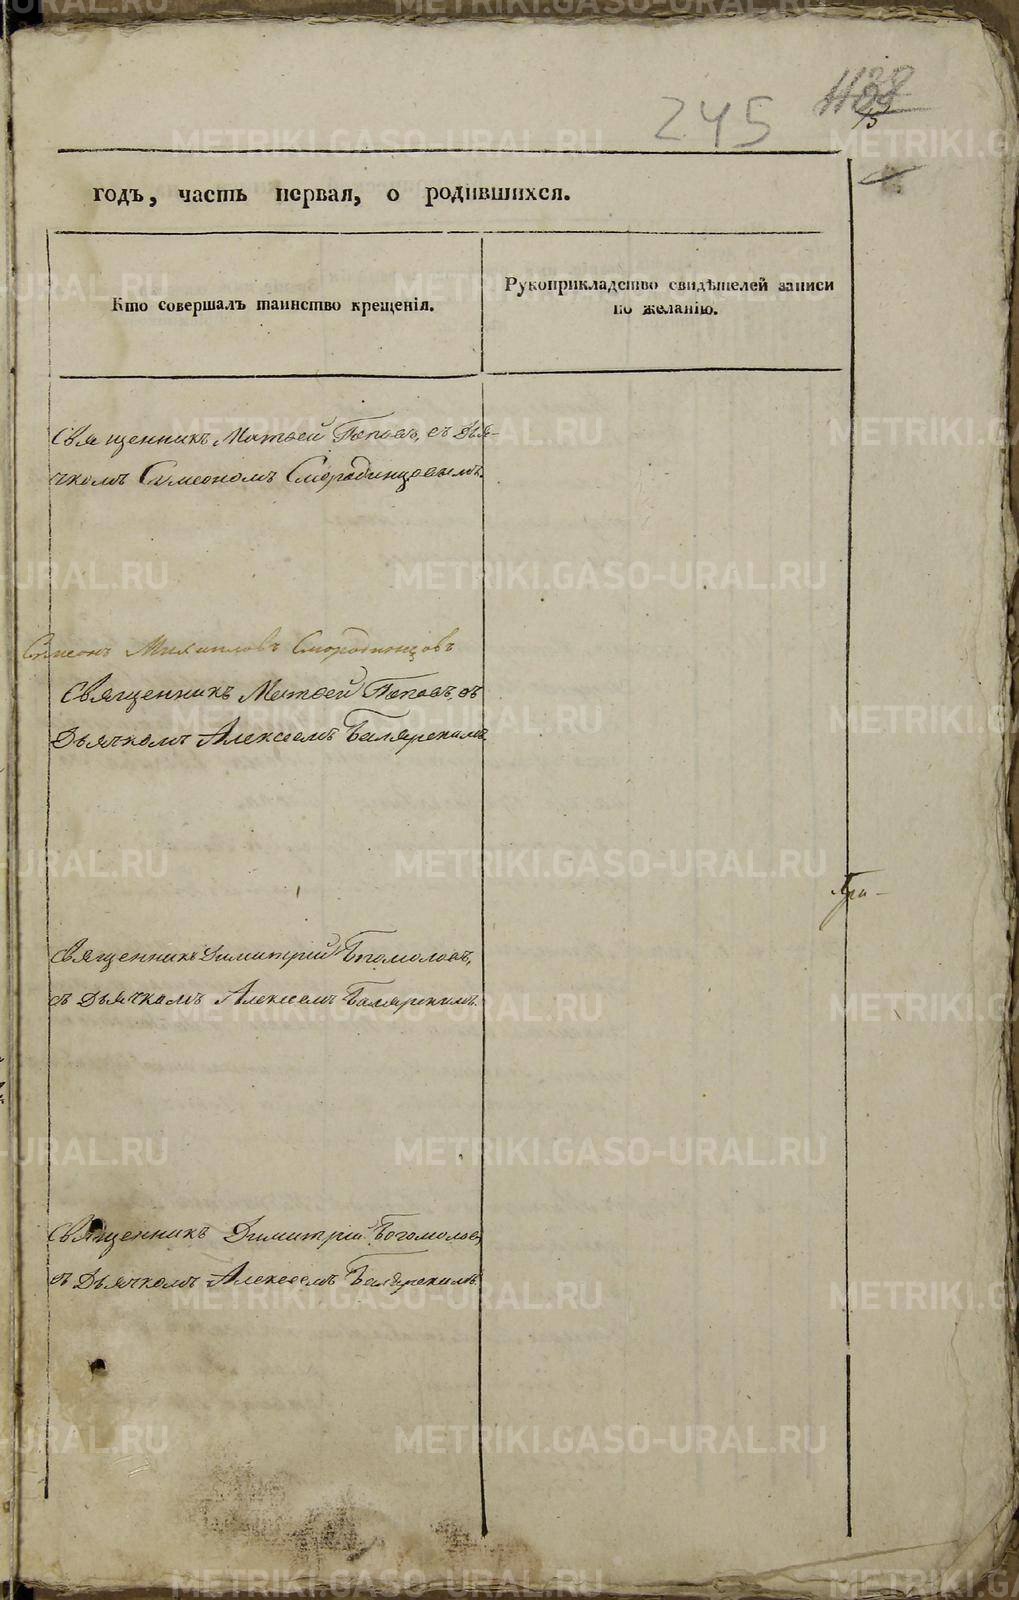 245
годъ, часть первая, о родившихся.
Кто совершалъ таинство крещенія.
Рукоприкладство свидѣтелей записи
по желанію.
Священникъ Матѳей Поповъ, съ Дья-
чкомъ Симеономъ Смородинцовымъ.
Симеонъ Михаиловъ Смородинцовъ
Священникъ Матѳей Поповъ, съ
Дьячкомъ Алексеемъ Балярскимъ
Священникъ Димитрій Богомоловъ,
съ Дьячкомъ Алексеемъ Балярскимъ.
Священникъ Димитрій Богомоловъ
съ Дьячкомъ Алексеемъ Балярскимъ
METRIKI.GASO-URAL.RU